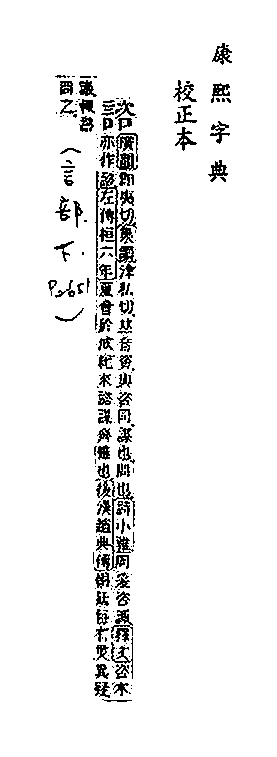 康熙字典
校正本
諮
廣韻即夷切集韻津私切𠀤音資與咨同謀也問也詩小雅周爰咨諏釋文咨本
亦作諮左傳桓六年夏會於成紀來諮謀齊難也後漢趙典傳朝廷每有災異疑
議輒諮
問之
(言部.下.P2651)